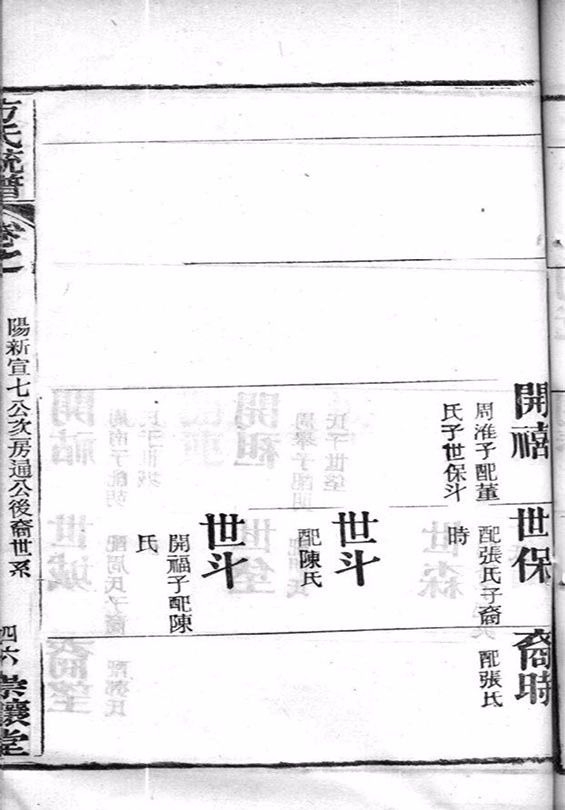 開禧
周淮子配董
氏子世保斗
世保
配張氏子裔
時
世斗
配陳氏
世斗
開福子配陳
氏
裔時
配張氏
方氏統譜
卷之一
陽新宣七公次房通公後裔世系
四六
崇讓堂